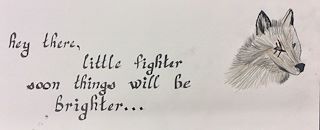 hey there,
little fighter
soon things will be
brighter...